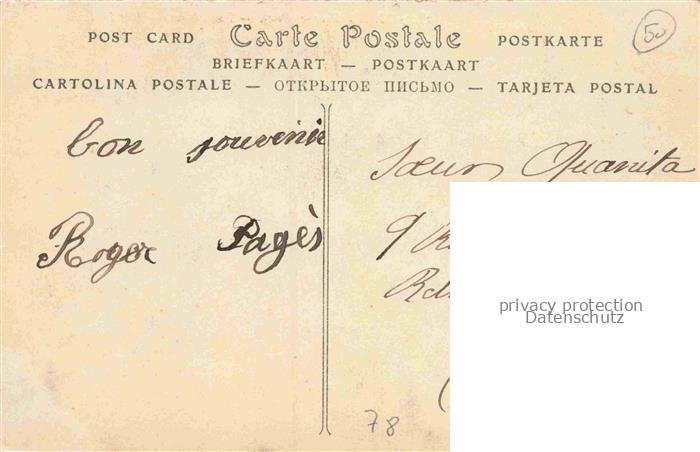 POST CARD Carte Postale POSTKARTE 50
BRIEFKAART — POSTKAART
CARTOLINA POSTALE — ОТКРЫТОЕ ПИСЬМО — TARJETA POSTAL
bon souvenir
Roger Pagès
Sœur
9
privacy protection
Datenschutz
78